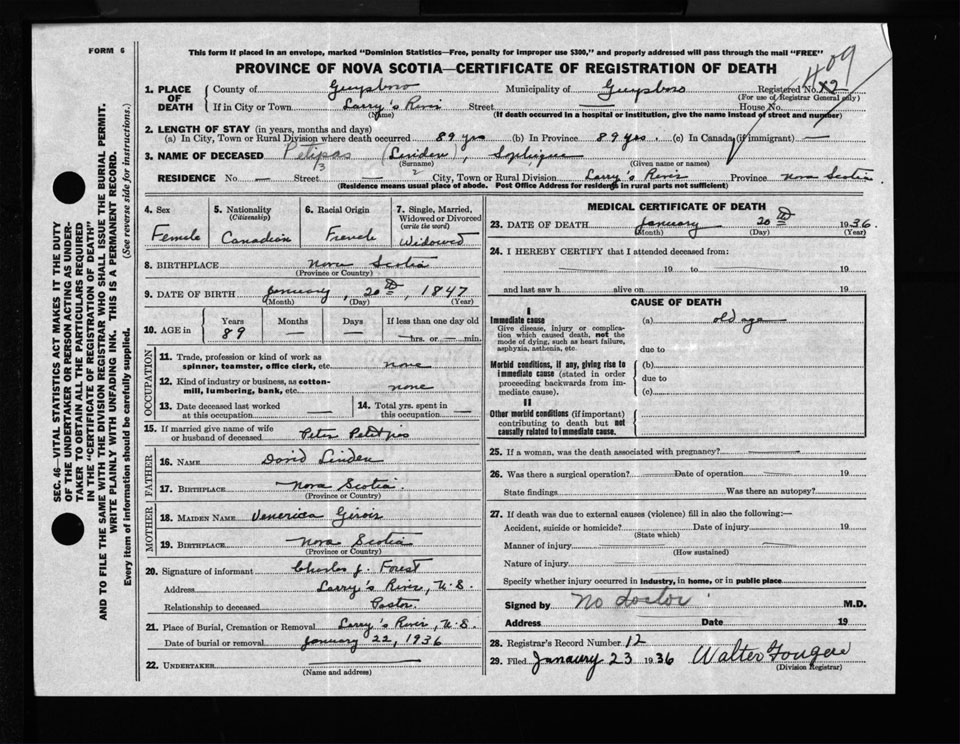 FORM 6
This form if placed in an envelope, marked "Dominion Statistics—Free, penalty for improper use $300," and properly addressed will pass through the mail "FREE"
409
PROVINCE OF NOVA SCOTIA—CERTIFICATE OF REGISTRATION OF DEATH
1. PLACE OF DEATH
County of Guysboro Municipality of Guysboro Registered No. 12
(For use of Registrar General only)
If in City or Town Larry's River Street — House No.
(Name) (If death occurred in a hospital or institution, give the name instead of street and number)
2. LENGTH OF STAY (in years, months and days)
(a) In City, Town or Rural Division where death occurred 89 yrs (b) In Province 89 yrs. (c) In Canada (if immigrant) —
3. NAME OF DECEASED Petipas (Linden), Sophique
(Surname) (Given name or names)
3 2
RESIDENCE No. — Street — City, Town or Rural Division Larry's River Province Nova Scotia
(Residence means usual place of abode. Post Office Address for residents in rural parts not sufficient)
4. Sex Female
5. Nationality (Citizenship) Canadian
6. Racial Origin French
7. Single, Married, Widowed or Divorced (write the word) Widowed
8. BIRTHPLACE Nova Scotia
(Province or Country)
9. DATE OF BIRTH January, 20th, 1847
(Month) (Day) (Year)
10. AGE in Years 89 Months — Days — If less than one day old —hrs. or — min.
OCCUPATION
11. Trade, profession or kind of work as spinner, teamster, office clerk, etc. none
12. Kind of industry or business, as cotton-mill, lumbering, bank, etc. none
13. Date deceased last worked at this occupation —
14. Total yrs. spent in this occupation —
15. If married give name of wife or husband of deceased Peter Petitpas
FATHER
16. NAME David Linden
17. BIRTHPLACE Nova Scotia
(Province or Country)
MOTHER
18. MAIDEN NAME Venerica Girois
19. BIRTHPLACE Nova Scotia
(Province or Country)
20. Signature of informant Charles J. Forest
Address Larry's River, N.S.
Relationship to deceased Pastor
21. Place of Burial, Cremation or Removal Larry's River, N.S.
Date of burial or removal January 22, 1936
22. UNDERTAKER
(Name and Address)
MEDICAL CERTIFICATE OF DEATH
23. DATE OF DEATH January 20th 1936
(Month) (Day) (Year)
24. I HEREBY CERTIFY that I attended deceased from:
19 to 19
and last saw h alive on 19
CAUSE OF DEATH
I
Immediate cause
Give disease, injury or complication which caused death, not the mode of dying, such as heart failure, asphyxia, asthenia, etc.
(a) old age
due to
Morbid conditions, if any, giving rise to immediate cause (stated in order proceeding backwards from immediate cause).
(b)
due to
(c)
II
Other morbid conditions (if important) contributing to death but not causally related to immediate cause.
25. If a woman, was the death associated with pregnancy?
26. Was there a surgical operation? Date of operation 19
State findings Was there an autopsy?
27. If death was due to external causes (violence) fill in also the following:—
Accident, suicide or homicide? Date of injury 19
(State which)
Manner of injury
(How sustained)
Nature of injury
Specify whether injury occurred in industry, in home, or in public place
Signed by No doctor M.D.
Address Date 19
28. Registrar's Record Number 12
29. Filed Janaury 23 1936 Walter Fougere
(Division Registrar)
SEC. 46—VITAL STATISTICS ACT MAKES IT THE DUTY
OF THE UNDERTAKER OR PERSON ACTING AS UNDER-
TAKER TO OBTAIN ALL THE PARTICULARS REQUIRED
IN THE "CERTIFICATE OF REGISTRATION OF DEATH"
AND TO FILE THE SAME WITH THE DIVISION REGISTRAR WHO SHALL ISSUE THE BURIAL PERMIT.
WRITE PLAINLY WITH UNFADING INK. THIS IS A PERMANENT RECORD.
Every item of information should be carefully supplied. (See reverse side for instructions.)